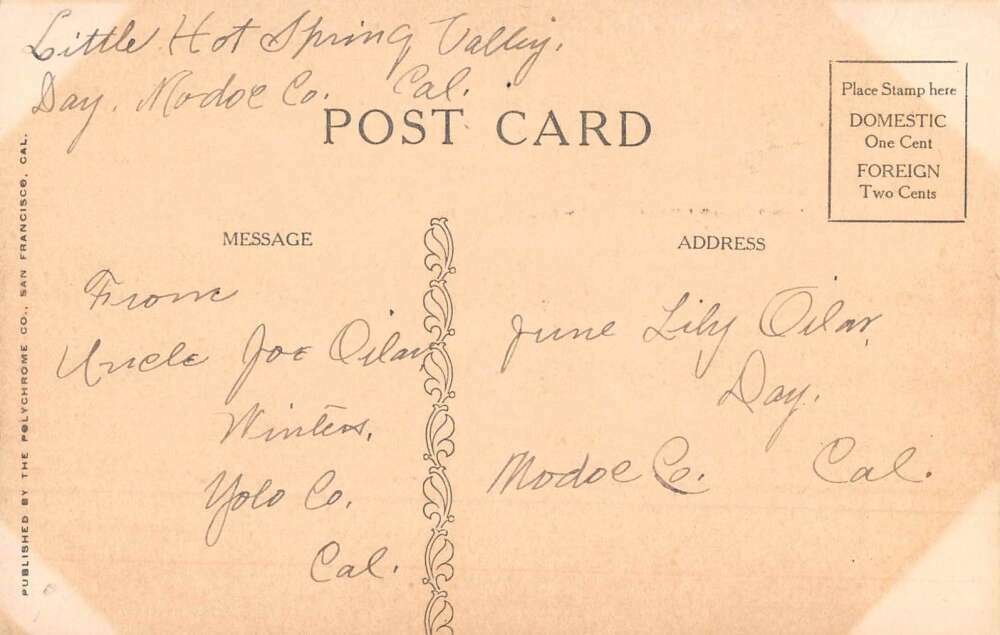 Little Hot Spring Valley,
Day. Modoc Co. Cal.
POST CARD
Place Stamp here
DOMESTIC
One Cent
FOREIGN
Two Cents
MESSAGE
From
Uncle Joe Oilar
Winters,
Yolo Co.
Cal.
ADDRESS
June Lily Oilar,
Day.
Modoc Co. Cal.
PUBLISHED BY THE POLYCHROME CO., SAN FRANCISCO, CAL.